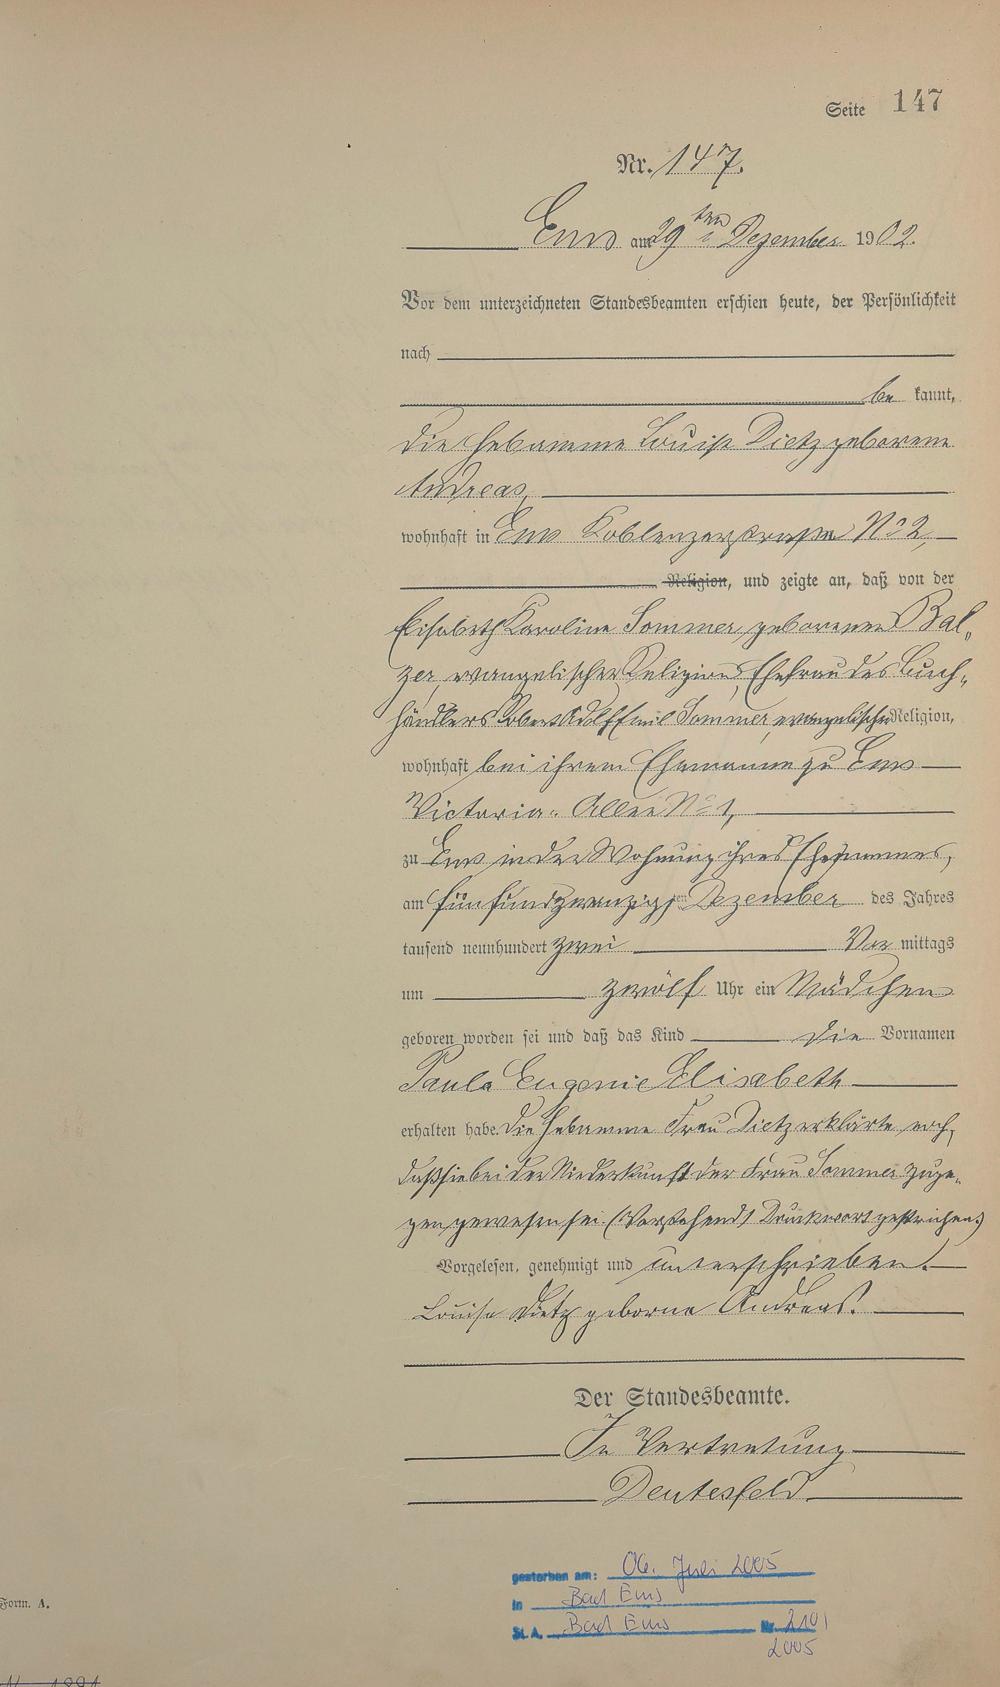 Seite 147
Nr. 147.
Ems am 29ten Dezember 1902.
Vor dem unterzeichneten Standesbeamten erschien heute, der Persönlichkeit
nach
be kannt,
die Hebamme Louise Dietz geborene
Andreas,
wohnhaft in Ems Koblenzerstrasse No 2,
Religion, und zeigte an, daß von der
Elisabeth Karoline Sommer, geborenen Bal„
zer, evangelischer Religion, Ehefrau des Buch„
händlers Robert Adolf Emil Sommer, evangelischer Religion,
wohnhaft bei ihrem Ehemanne zu Ems
Victoria-Allee No 1,
zu Ems in der Wohnung ihres Ehemannes,
am fünfundzwanzigsten Dezember des Jahres
tausend neunhundert zwei Vor mittags
um zwölf Uhr ein Mädchen
geboren worden sei und daß das Kind die Vornamen
Paula Eugenie Elisabeth
erhalten habe. Die Hebamme Frau Dietz erklärte noch,
daß sie bei der Niederkunft der Frau Sommer zuge„
gen gewesen sei. (Vorstehend 1 Druckwort gestrichen.)
Vorgelesen, genehmigt und unterschrieben.
Louise Dietz geborne Andreas.
Der Standesbeamte.
In Vertretung
Deutesfeld
gestorben am: 06. Juli 2005
in Bad Ems
St. A. Bad Ems Nr. 210/
2005
Form. A.